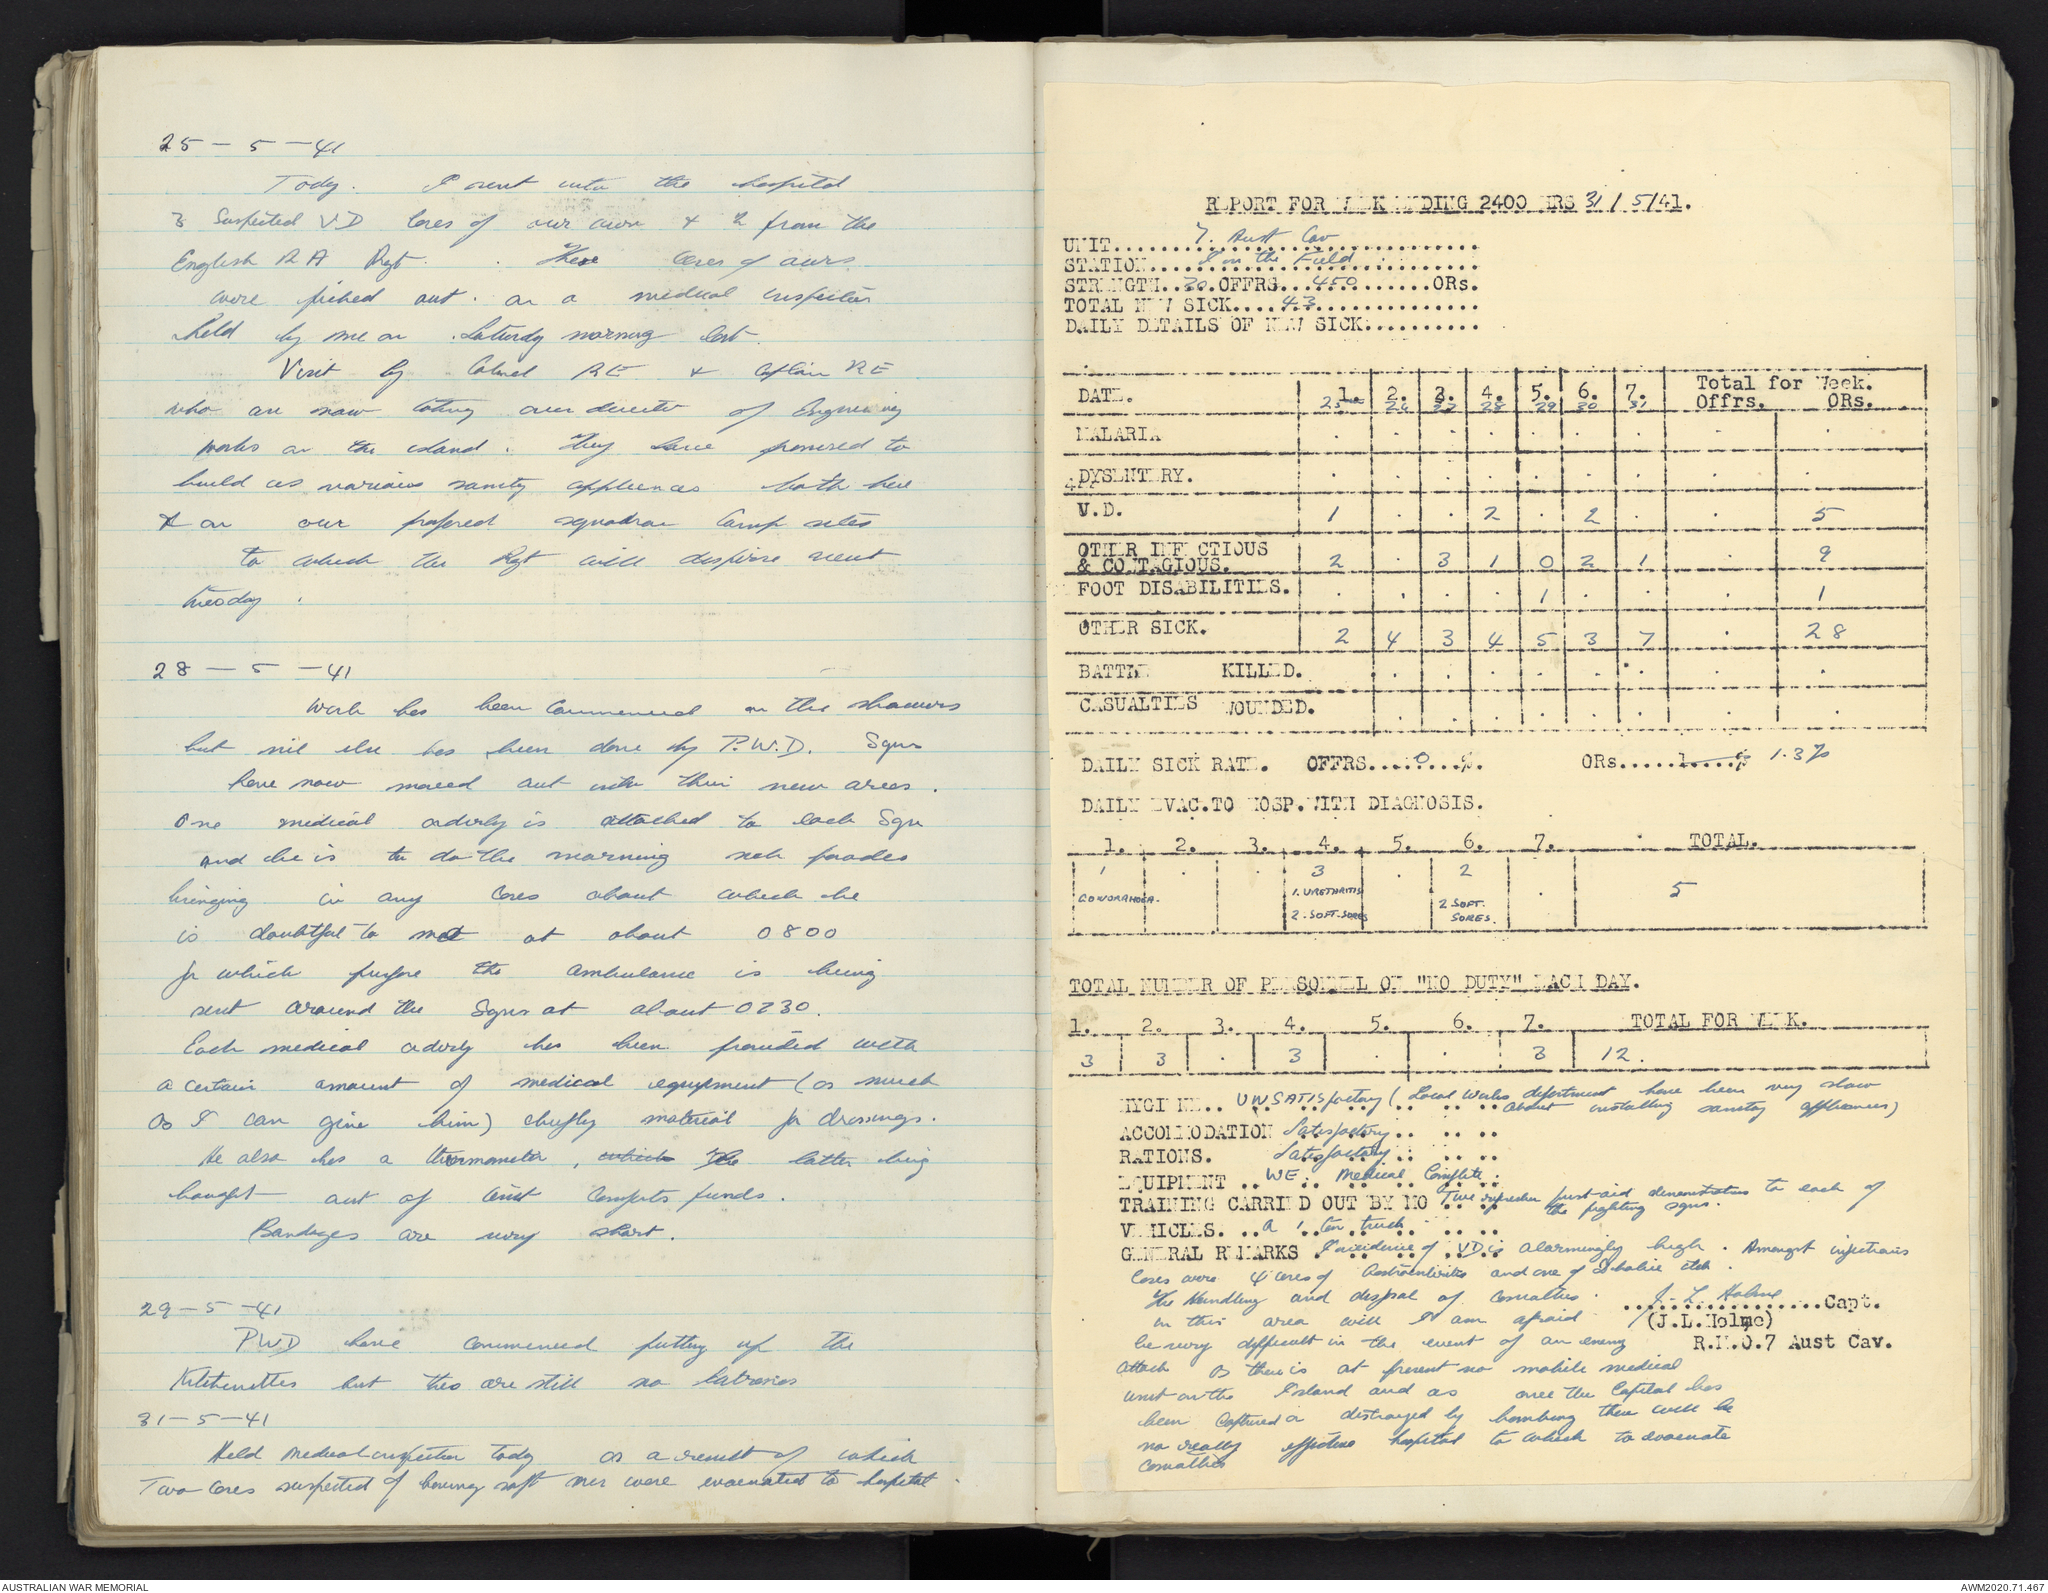 25-5-41
Today. I sent into the hospital
3 Suspected VD cases of our own & 2 from the
English RA Rgt. These cases of ours
were picked out on a medical inspection
held by me on Saturday morning last.
Visit by Colonel RE & Captain RE
who are now acting as director of Engineering
works on the island. They have promised to
build us various sanity appliances both here
& on our proposed squadron Camp sites
to which the Rgt will disperse next
tuesday.
28-5-41
Work has been commenced on the showers
but nil else has been done by P.W.D. Sqns
have now moved out into their new areas.
One medical orderly is attached to each Sqn
and he is to do the morning sick parades
bringing in any cases about which he
is doubtful to me at about 0800
for which purpose the ambulance is being
sent around the Sqns at about 0730.
Each medical orderly has been provided with
a certain amount of medical equipment (as much
as I can give him) chiefly material for dressings.
He also has a thermometer, which the latter being
bought out of Aust Comforts funds.
Bandages are very short.
29-5-41
PWD have commenced putting up the
Kitchenettes but theo are still no latrines
31-5-41
Held medical inspection today as a result of which
Two cases suspected of having soft sores were evacuated to hospital.
REPORT FOR WEEK ENDING 2400 HRS 31/5/41.
UNIT.......7. Aust Cav
STATION.....In the Field
STRENGTH..30.OFFRS...450.......ORs.
TOTAL NEW SICK....43
DAILY DETAILS OF NEW SICK..........
DATE. 1. 2. 3. 4. 5. 6. 7. Total for Week.
25 26 27 28 29 30 31 Offrs. ORs.
MALARIA . . . . . . . . .
DYSENTERY. . . . . . . . . .
V.D. 1 . . 2 . 2 . . 5
OTHER INFECTIOUS
& CONTAGIOUS. 2 . 3 1 0 2 1 . 9
FOOT DISABILITIES. . . . . 1 . . . 1
OTHER SICK. 2 4 3 4 5 3 7 . 28
BATTLE KILLED. . . . . . . . . .
CASUALTIES WOUNDED. . . . . . . . . .
DAILY SICK RATE. OFFRS....0...%. ORs.....1....% 1.3%
DAILY EVAC.TO HOSP.WITH DIAGNOSIS.
1. 2. 3. 4. 5. 6. 7. TOTAL.
1 . . 3 . 2 . 5
GONORRHOEA. 1. URETHRITIS 2 SOFT.
2. SOFT SORES SORES.
TOTAL NUMBER OF PERSONNEL ON "NO DUTY" EACH DAY.
1. 2. 3. 4. 5. 6. 7. TOTAL FOR WEEK.
3 3 . 3 . . 3 12.
HYGIENE.. UNSATISfactory (Local Works department have been very slow
about installing sanitary appliances)
ACCOMMODATION Satisfactory
RATIONS. Satisfactory
EQUIPMENT .. WE.. Medical Complete
TRAINING CARRIED OUT BY MO Two refresher first-aid demonstrations to each of
the fighting sqns.
VEHICLES. .. a 1 ton truck
GENERAL REMARKS Incidence of VD is alarmingly high. Amongst infectious
Cases were 4 cases of Gastroenteritis and one of Dhobie itch.
The Handling and disposal of casualties
in this area will I am afraid
be very difficult in the event of an enemy
attack as there is at present no mobile medical
unit on the Island and as once the Capital has
been captured or destroyed by bombing there will be
no really effective hospital to which to evacuate
casualties
J. L. Holme Capt.
(J.L.Holme)
R.M.O.7 Aust Cav.
AUSTRALIAN WAR MEMORIAL
AWM2020.71.467